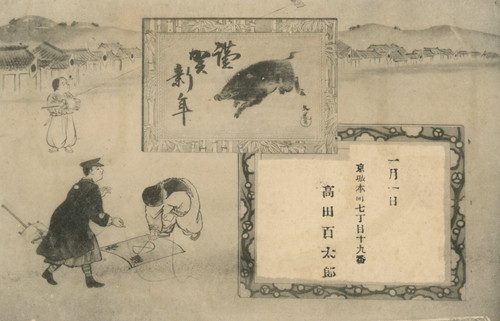 謹
賀
新年
一月一日
京城本町七丁目十九番
高田百太郎